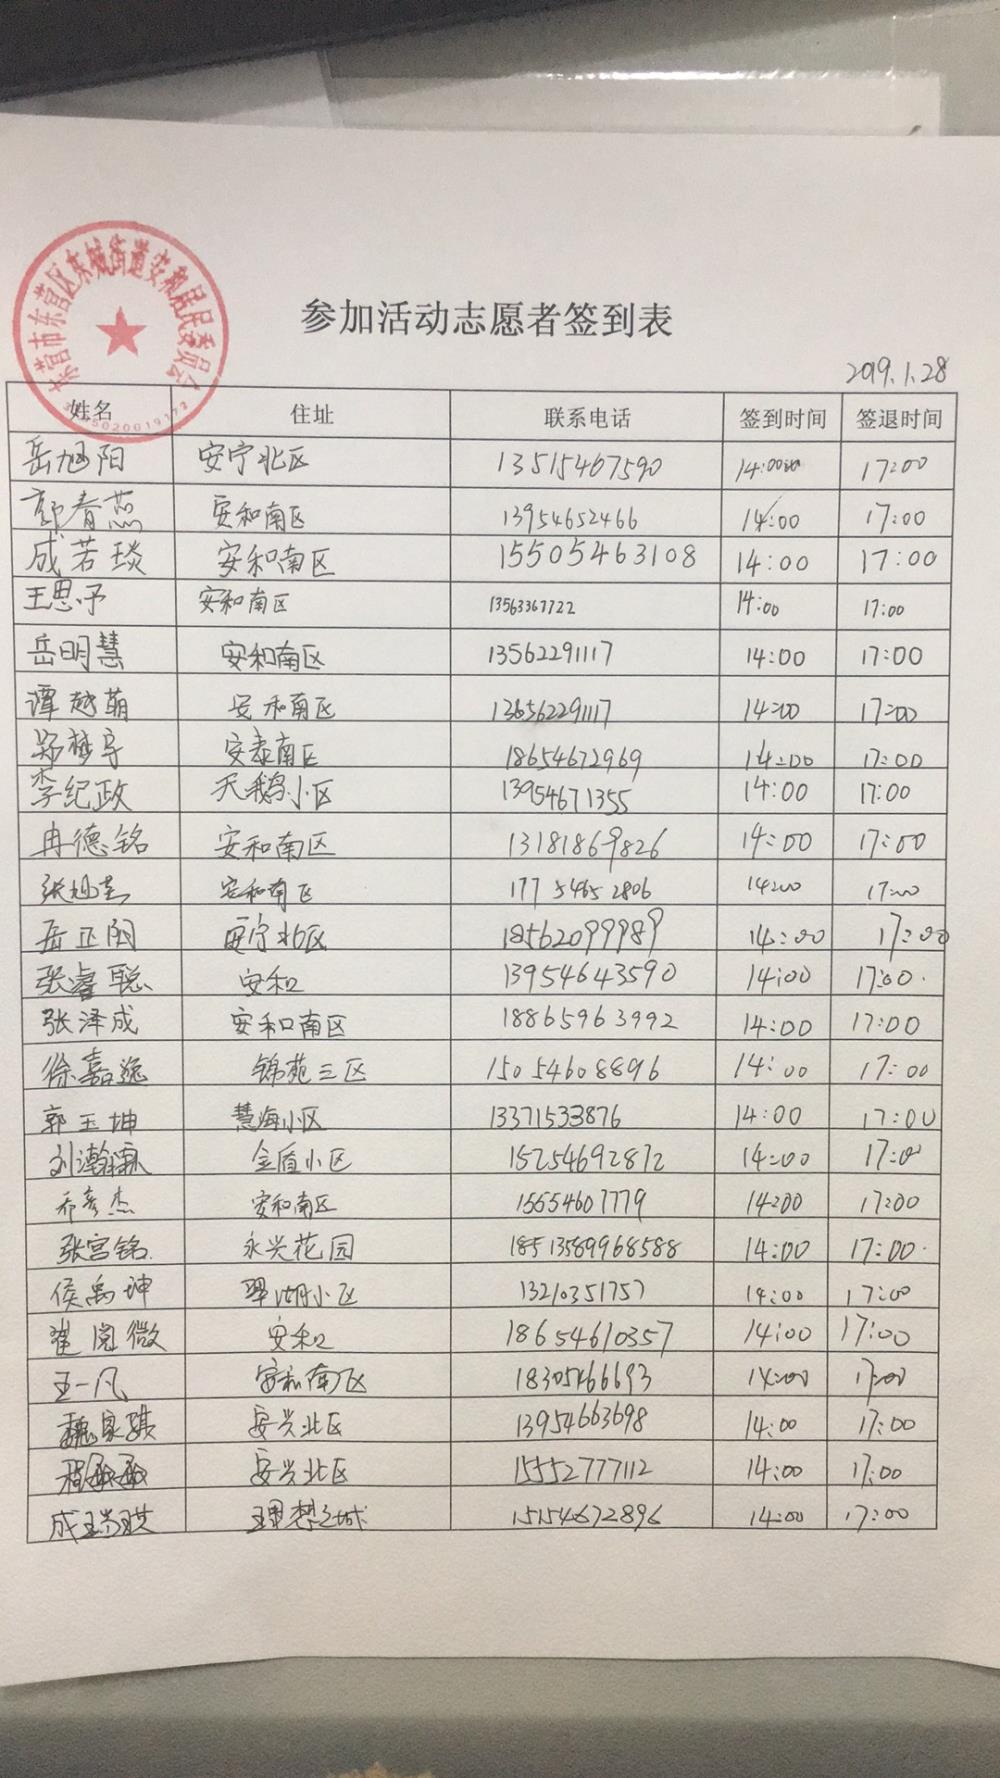 东营市东营区东城街道安和居民委员会
参加活动志愿者签到表
2019.1.28
姓名 住址 联系电话 签到时间 签退时间
岳旭阳 安宁北区 13515467590 14:00 17:00
郭春燕 安和南区 13954652466 14:00 17:00
成若琰 安和南区 15505463108 14:00 17:00
王思予 安和南区 13563367722 14:00 17:00
岳明慧 安和南区 13562291117 14:00 17:00
谭越萌 安和南区 136562291117 14:00 17:00
郑梦宇 安泰南区 18654672969 14:00 17:00
李纪政 天鹅小区 13954671355 14:00 17:00
冉德铭 安和南区 13181869826 14:00 17:00
张旭志 安和南区 177 5465 2806 14:00 17:00
岳正阳 安宁北区 18562099989 14:00 17:00
张睿聪 安和 13954643590 14:00 17:00.
张泽成 安和南区 18865963992 14:00 17:00
徐嘉逸 锦苑三区 15054608896 14:00 17:00
郭玉坤 慧海小区 13371533876 14:00 17:00
刘瀚霖 金盾小区 15254692872 14:00 17:00
乔彦杰 安和南区 15554607779 14:00 17:00
张宫铭. 永兴花园 18513589968588 14:00 17:00.
侯禹坤 翠湖小区 13210351757 14:00 17:00
崔阅微 安和 18654610357 14:00 17:00
王一凡 安和南区 18305466693 14:00 17:00
魏家骐 安兴北区 13954663698 14:00 17:00
安兴北区 15552777112 14:00 17:00
成瑞琪 理想之城 15154672896 14:00 17:00